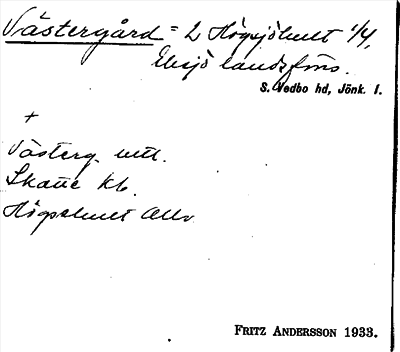 Västergård = 2 Högsjöhult 1/4,
Eksjö landsförs.
S. Vedbo hd, Jönk. l.
+
Västerg. utt.
Skatte kb.
Högsehult Allv
FRITZ ANDERSSON 1933.